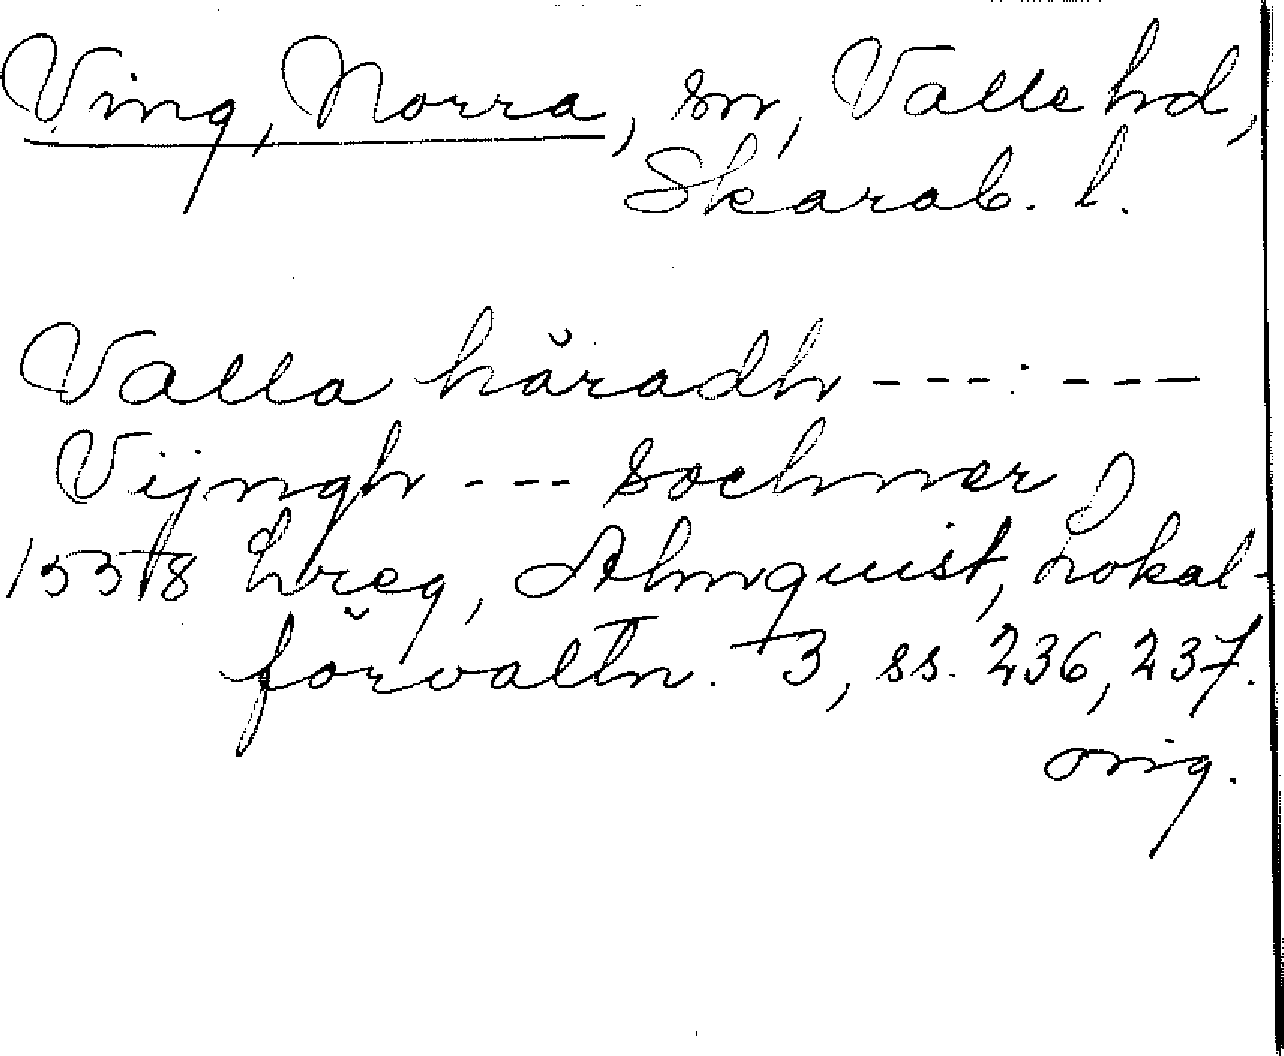 Ving, Norra, sn, Valle hd,
Skarab. l.
Valla häradh ---:---
Vijngh --- sochner
1538 Lreg, Almquist, Lokal-
förvaltn. 3, ss. 236, 237.
orig.